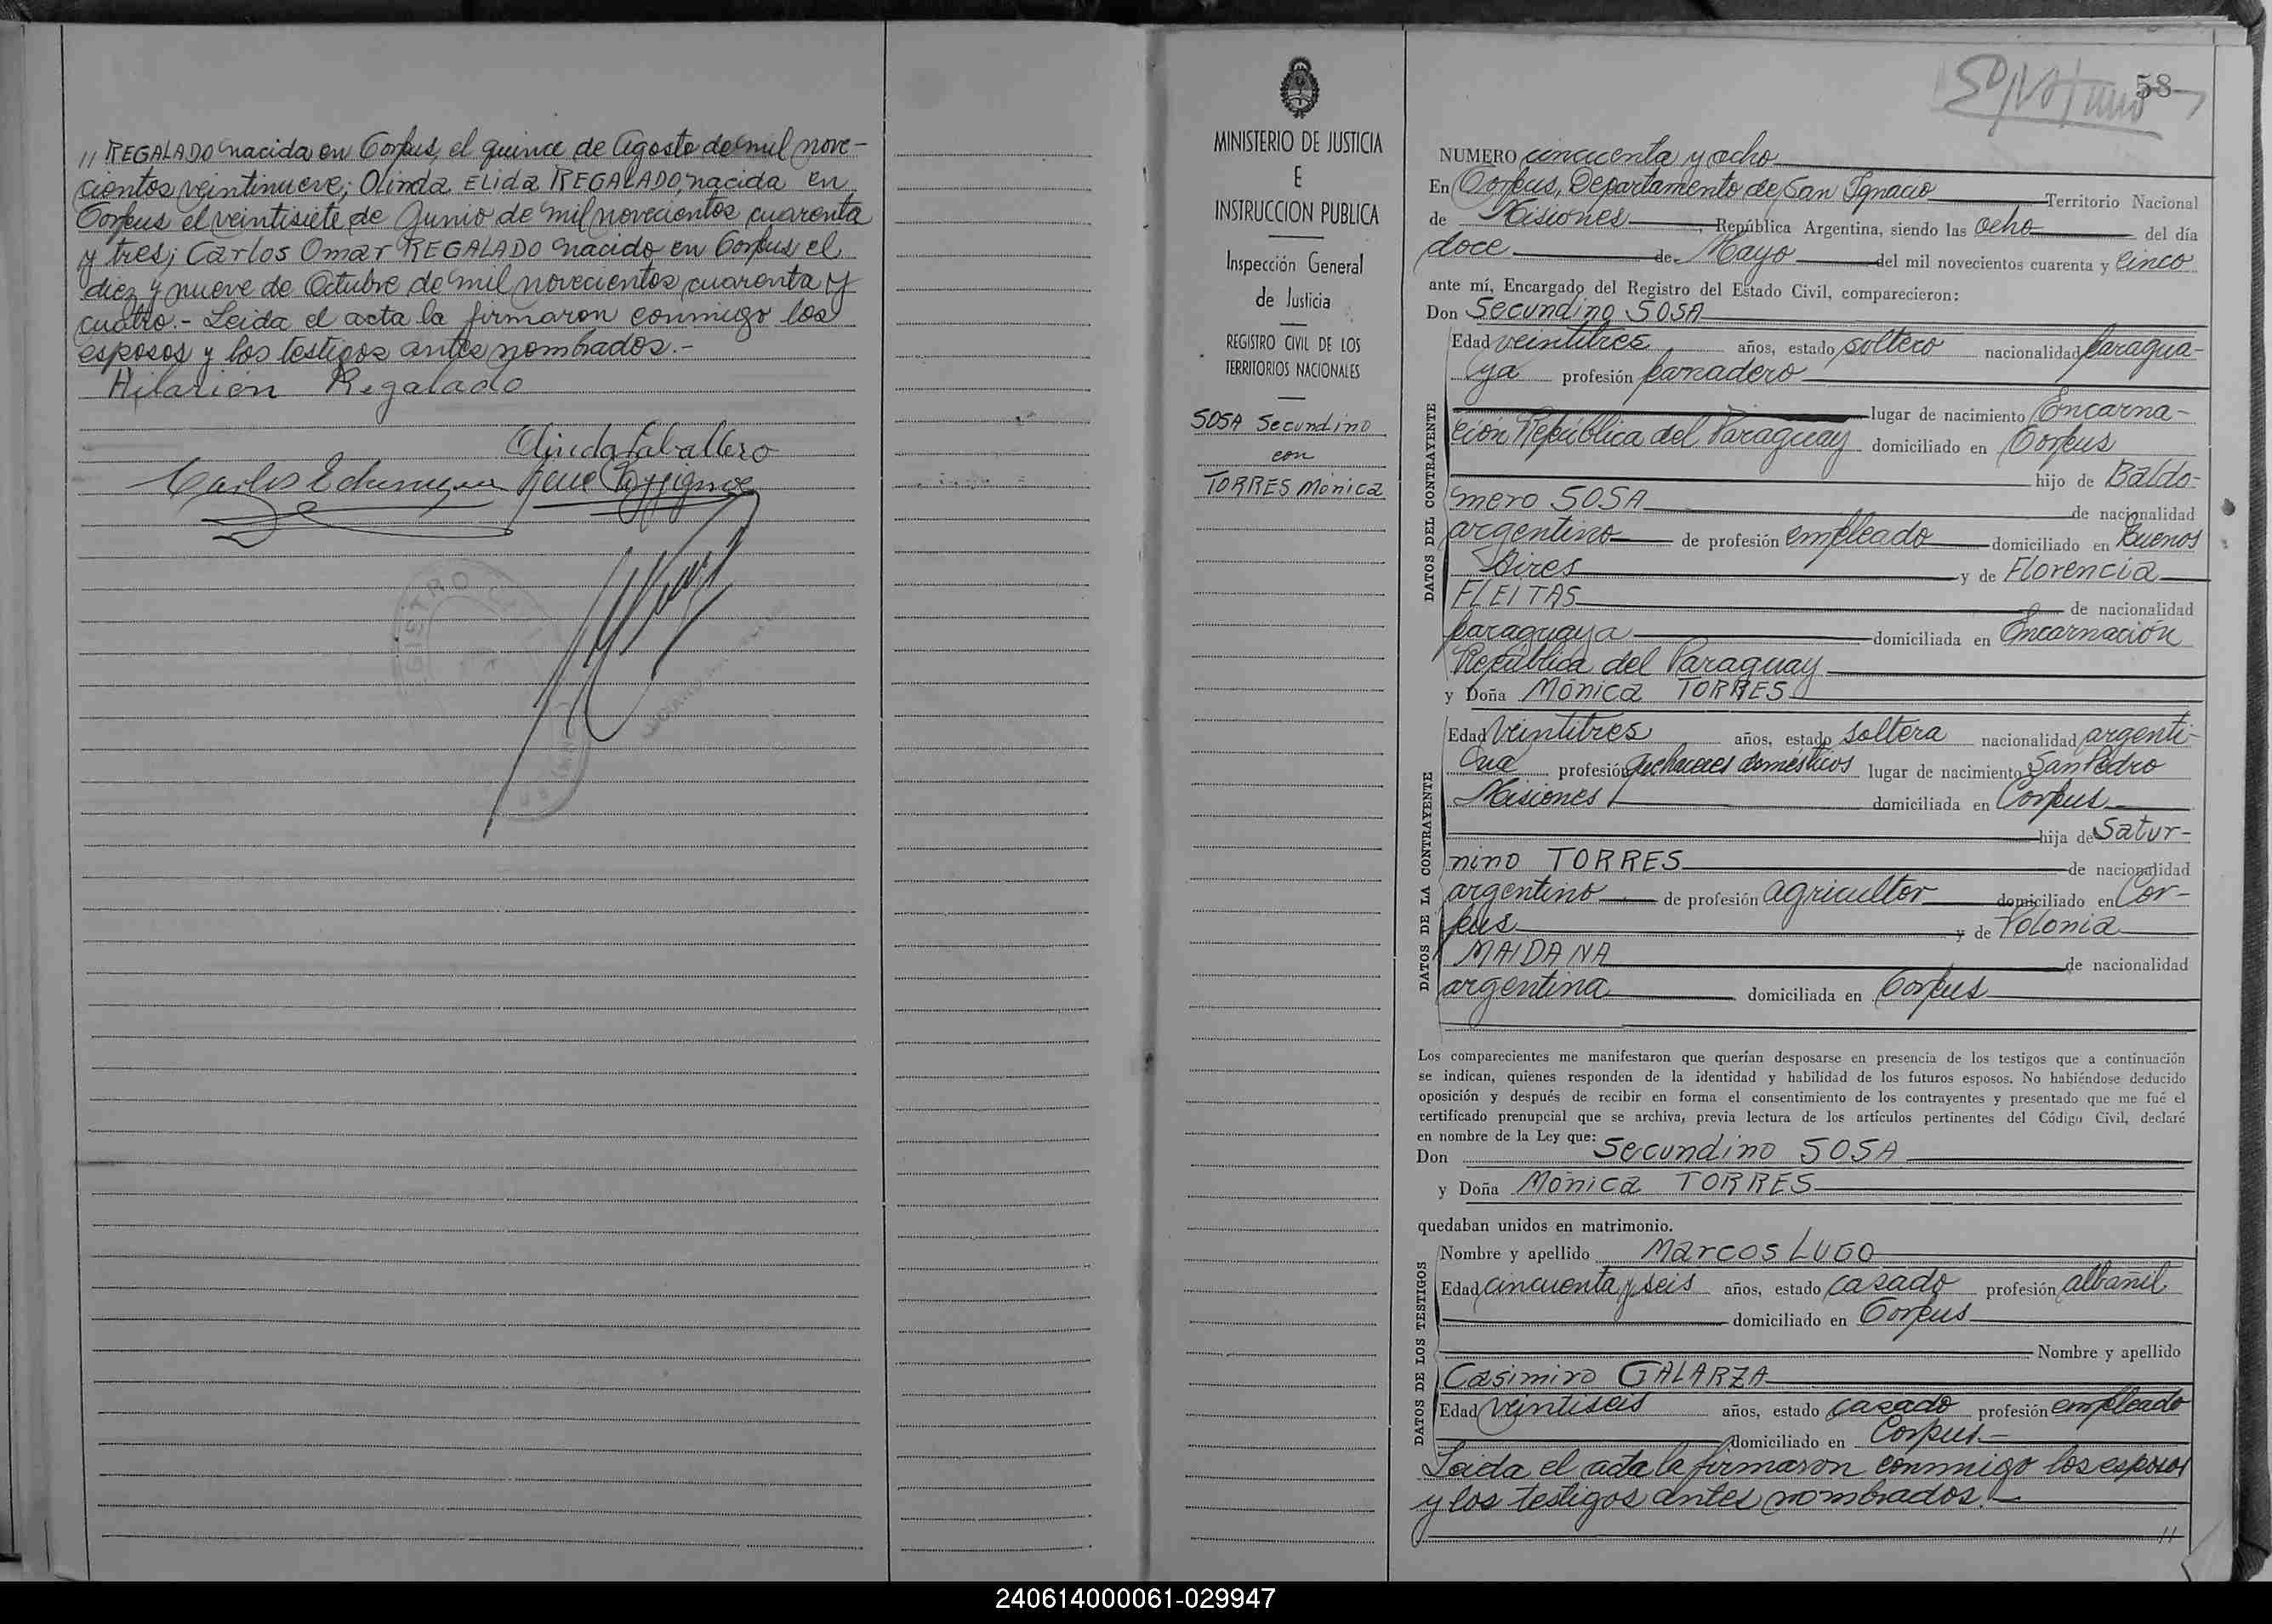 // REGALADO nacida en Corpus, el quince de Agosto de mil nove-
cientos veintinueve; Olinda ELIDA REGALADO, nacida en
Corpus el veintisiete de Junio de mil novecientos cuarenta
y tres; Carlos Omar REGALADO nacido en Corpus el
diez y nueve de Octubre de mil novecientos cuarenta y
cuatro.- Leida el acta la firmaron conmigo los
esposos y los testigos antes nombrados.-
Hilarión Regalado
Olinda Caballero
Carlos
REGISTRO CIVIL
MINISTERIO DE JUSTICIA
E
INSTRUCCION PUBLICA
Inspección General
de Justicia
REGISTRO CIVIL DE LOS
TERRITORIOS NACIONALES
SOSA Secundino
con
TORRES Mónica
58
NUMERO cincuenta y ocho
En Corpus, Departamento de San Ignacio Territorio Nacional
de Misiones, República Argentina, siendo las ocho del día
doce de Mayo del mil novecientos cuarenta y cinco
ante mí, Encargado del Registro del Estado Civil, comparecieron:
Don Secundino SOSA
DATOS DEL CONTRAYENTE
Edad veintitres años, estado soltero nacionalidad paragua-
ya profesión panadero
lugar de nacimiento Encarna-
ción República del Paraguay domiciliado en Corpus
hijo de Baldo-
mero SOSA de nacionalidad
argentino de profesión empleado domiciliado en Buenos
Aires y de Florencia
FLEITAS de nacionalidad
paraguaya domiciliada en Encarnación
República del Paraguay
y Doña Mónica TORRES
DATOS DE LA CONTRAYENTE
Edad veintitres años, estado soltera nacionalidad argenti-
na profesión quehaceres domésticos lugar de nacimiento San Pedro
Misiones domiciliada en Corpus
hija de Satur-
nino TORRES de nacionalidad
argentino de profesión agricultor domiciliado en Cor-
pus y de Polonia
MAIDANA de nacionalidad
argentina domiciliada en Corpus
Los comparecientes me manifestaron que querían desposarse en presencia de los testigos que a continuación
se indican, quienes responden de la identidad y habilidad de los futuros esposos. No habiéndose deducido
oposición y después de recibir en forma el consentimiento de los contrayentes y presentado que me fué el
certificado prenupcial que se archiva, previa lectura de los artículos pertinentes del Código Civil, declaré
en nombre de la Ley que:
Don Secundino SOSA
y Doña Mónica TORRES
quedaban unidos en matrimonio.
DATOS DE LOS TESTIGOS
Nombre y apellido Marcos LUGO
Edad cincuenta y seis años, estado casado profesión albañil
domiciliado en Corpus
Nombre y apellido
Casimiro GALARZA
Edad veintiseis años, estado casado profesión empleado
domiciliado en Corpus.-
Leida el acta la firmaron conmigo los esposos
y los testigos antes nombrados.-
//
240614000061-029947